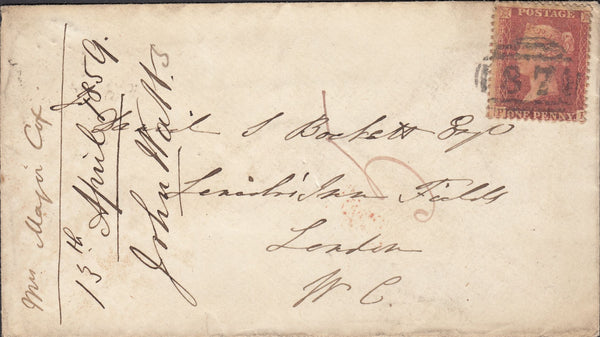 Daniel S Bockett Esq
Lincoln's Inn Fields
London
W C.
13th April 1859.
John Watts
Mrs Major Cox
POSTAGE
ONE PENNY
87